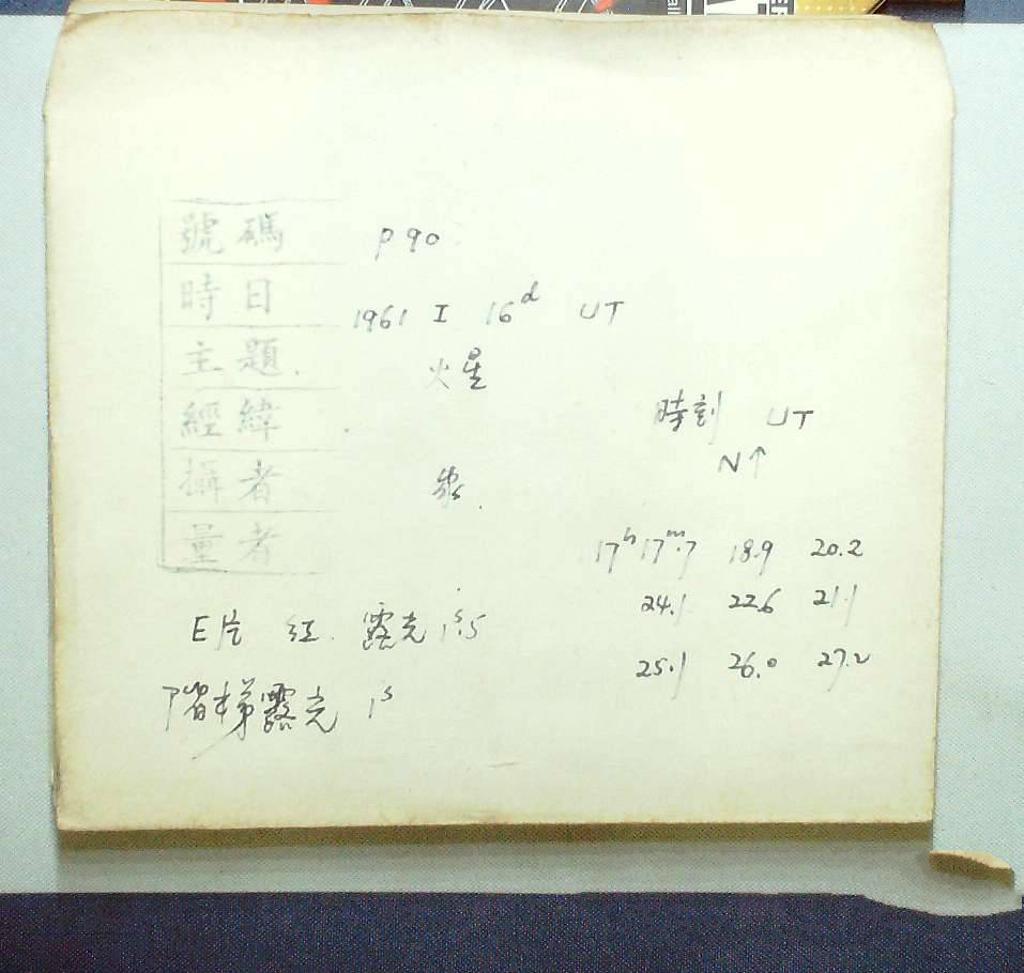 號碼 P 90
時日 1961 I 16d UT
主題 火星
經緯
攝者
量者
時刻 UT
N↑
17h 17m.7 18.9 20.2
24.1 22.6 21.1
25.1 26.0 27.2
E片 红 露光 1s.5
階梯露光 1s